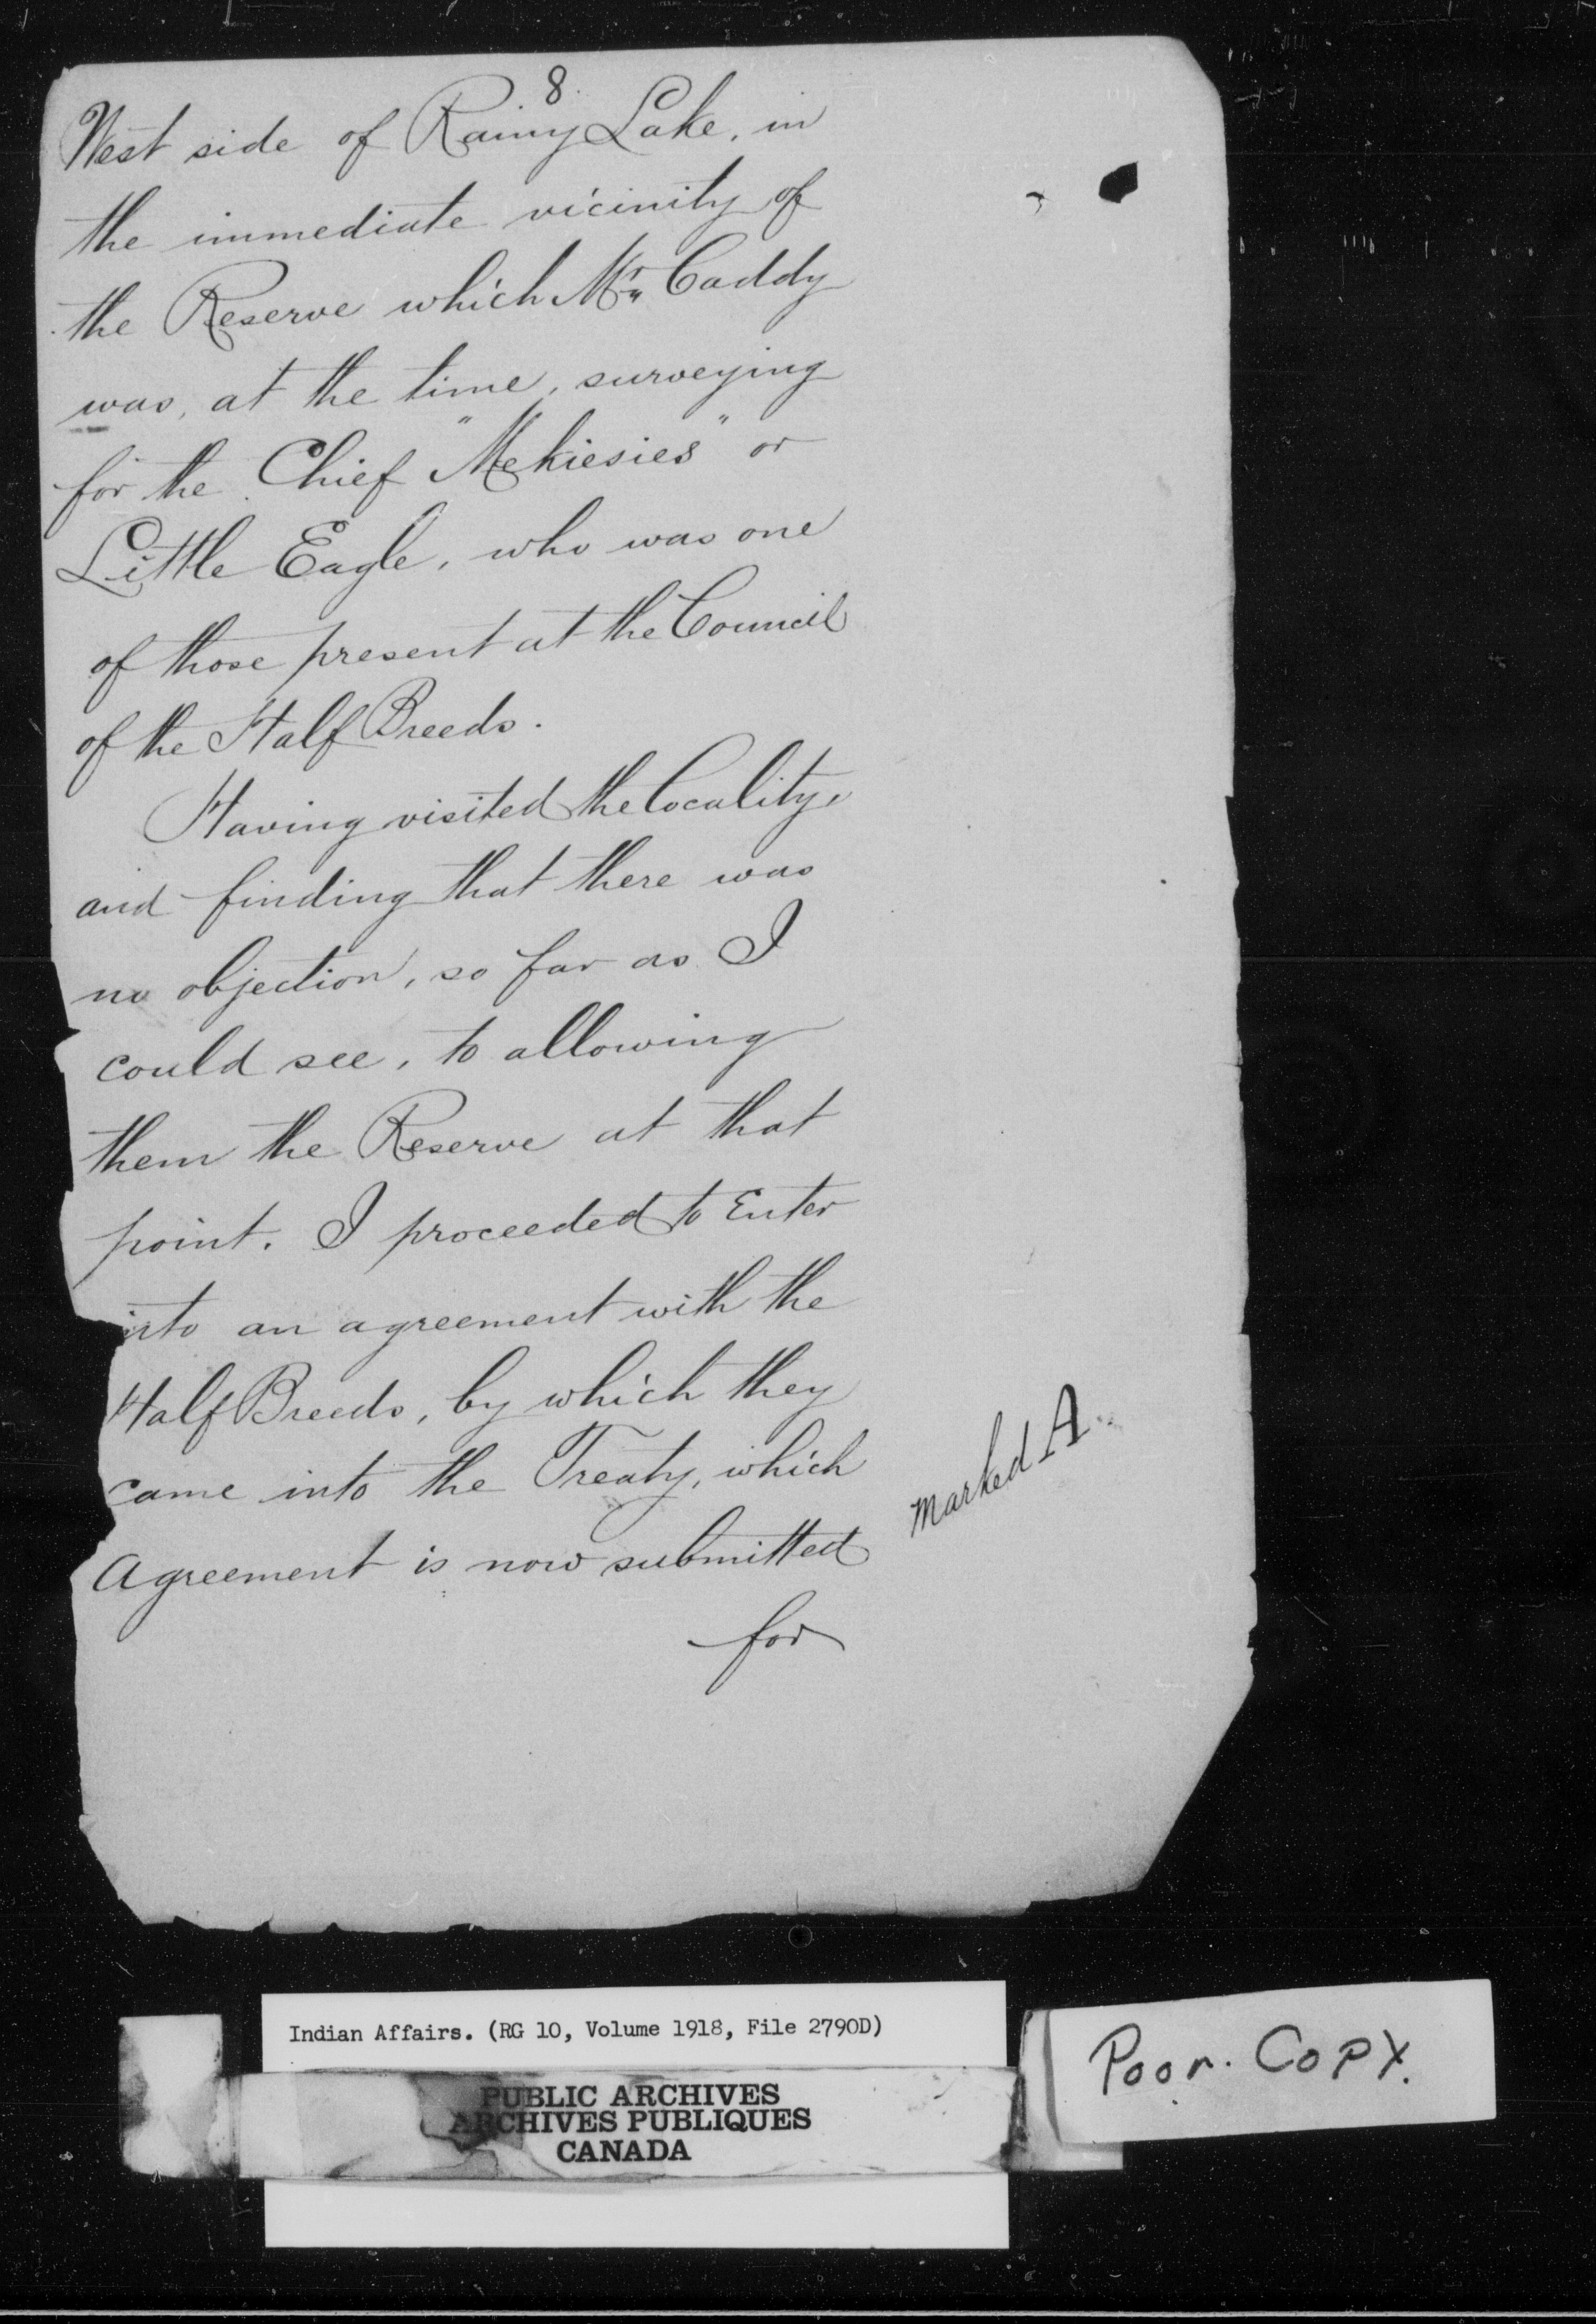 8.
West side of Rainy Lake, in
the immediate vicinity of
the Reserve which Mr. Caddy
was, at the time, surveying
for the Chief "Mekiesies" or
Little Eagle, who was one
of those present at the Council
of the Half Breeds.
Having visited the locality,
and finding that there was
no objection, so far as I
could see, to allowing
them the Reserve at that
point. I proceeded to Enter
into an agreement with the
Half Breeds, by which they
came into the Treaty, which
Agreement is now submitted
for
marked A
Indian Affairs. (RG 10, Volume 1918, File 2790D)
PUBLIC ARCHIVES
ARCHIVES PUBLIQUES
CANADA
Poor. Copy.